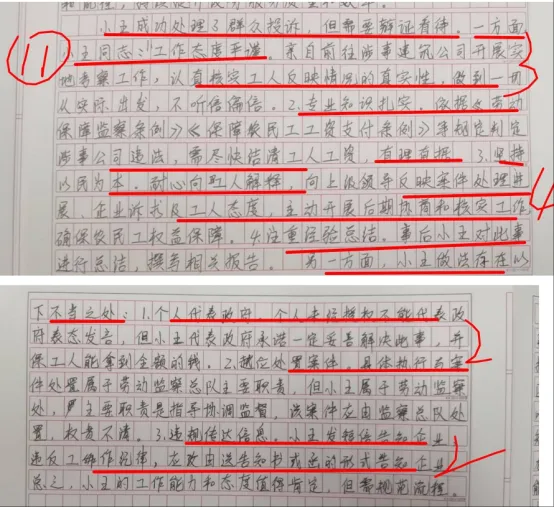 和能性，持续设计及切服务质量和效率。
小王成功处理了群众投诉，但需要辩证看待。一方面，
小王同志:1.工作态度严谨。亲自前往涉事建筑公司开展实
地考察工作，认真核实工人反映情况的真实性，做到一切
从实际出发，不听信偏信。2.专业知识扎实。依据《劳动
保障监察条例》《保障农民工工资支付条例》等规定判定
涉事公司违法，需尽快结清工人工资，有理有据。3.坚持
以民为本。耐心向工人解释，向上级领导反映案件处理进
展、企业诉求及工人态度，主动开展后期协商和核实工作，
确保农民工权益保障。4.注重经验总结。事后小王对此事
进行总结，撰写相关报告。另一方面，小王做法存在以
11
4
下不当之处：1.个人代表政府。个人未经授权不能代表政
府表态发言，但小王代表政府承诺一定妥善解决此事，并
保工人能拿到全额的钱。2.越位处置案件。具体执行与案
件处置属于劳动监察总队主要职责，但小王属于劳动监察
处，主要职责是指导协调监督，该案件应由监察总队处
置，权责不清。3.违规传达信息。小王发短信告知企业
违反工作纪律，应改由送告知书或函的形式告知企业。
总之，小王的工作能力和态度值得肯定，但需规范流程。
2